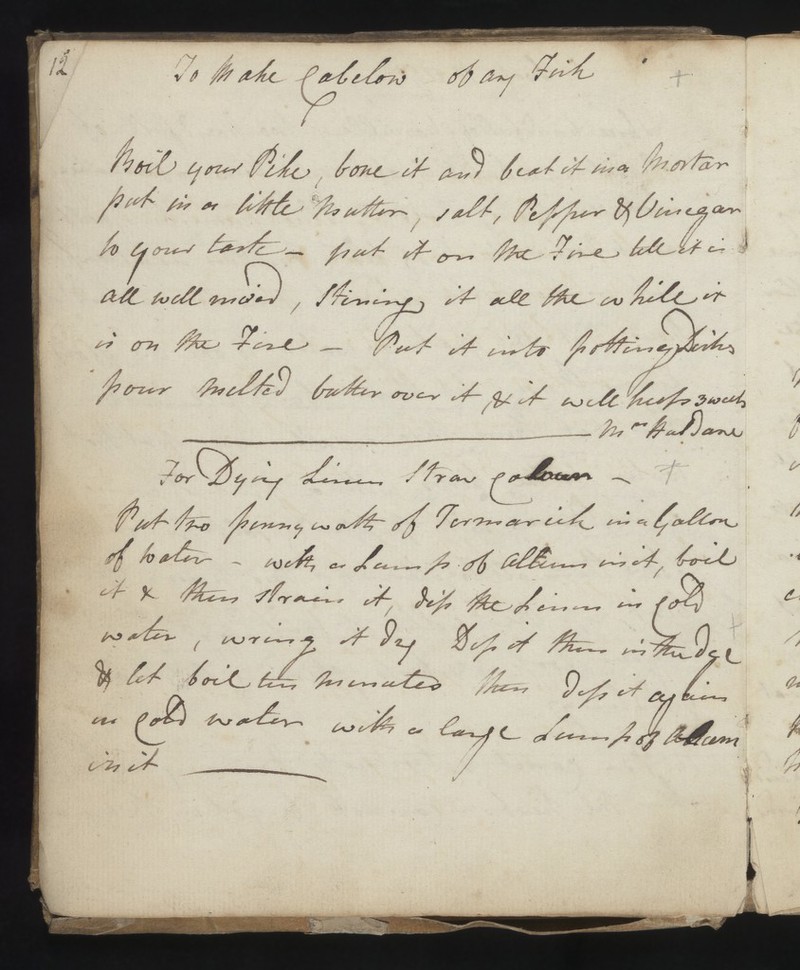 12
To Make Cabelow of any Fish
Boil your Pike, bone it and beat it in a Mortar
put in a little Butter, salt, Pepper & Vinegar
to your taste - put it on the Fire till it is
all well mixed, Stirring it all the while it
is on the Fire - Put it into potting Dishes
pour Melted butter over it & it will keep 3 weeks
Mrs Haldane
For Dying Linen Straw Colour -
Put two pennyworth of Termarick in a Gallon
of Water - with a Lump of Allum in it, boil
it & then strain it, dip the Linen in Cold
water, wring it dry Dip it then in the dye
& let boil ten Minutes then dip it again
in Cold water with a large Lump of Alum
in it